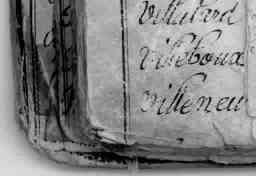 villatvd
villeboux
villeneu